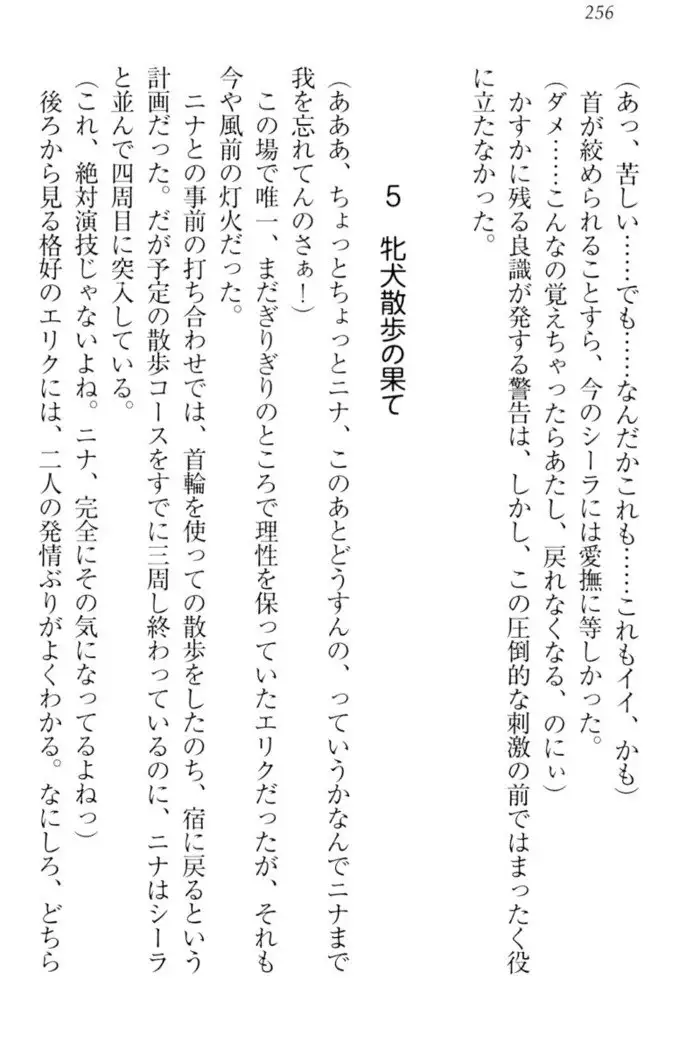 256
(あっ、苦しい……でも……なんだかこれも……これもイイ、かも)
首が絞められることすら、今のシーラには愛撫に等しかった。
(ダメ……こんなの覚えちゃったらあたし、戻れなくなる、のにぃ)
かすかに残る良識が発する警告は、しかし、この圧倒的な刺激の前ではまったく役
に立たなかった。
5 牝犬散歩の果て
(あああ、ちょっとちょっとニナ、このあとどうすんの、っていうかなんでニナまで
我を忘れてんのさぁ!)
この場で唯一、まだぎりぎりのところで理性を保っていたエリクだったが、それも
今や風前の灯火だった。
ニナとの事前の打ち合わせでは、首輪を使っての散歩をしたのち、宿に戻るという
計画だった。だが予定の散歩コースをすでに三周し終わっているのに、ニナはシーラ
と並んで四周目に突入している。
(これ、絶対演技じゃないよね。ニナ、完全にその気になってるよねっ)
後ろから見る格好のエリクには、二人の発情ぶりがよくわかる。なにしろ、どちら